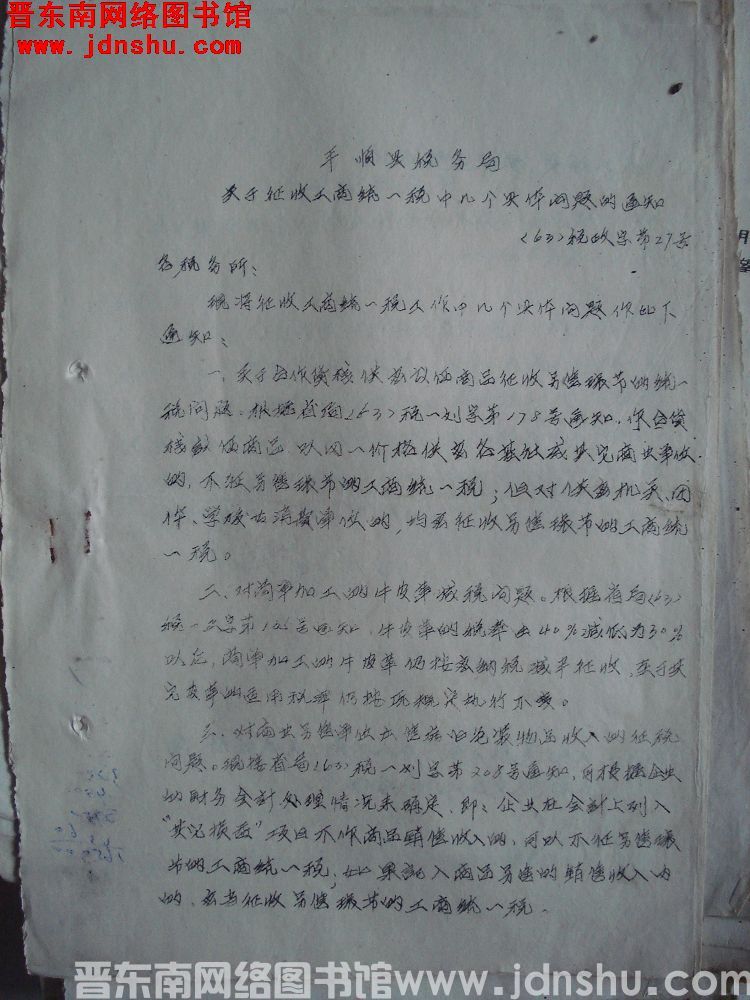 晋东南网络图书馆
www.jdnshu.com
平顺县税务局
关于征收工商统一税中几个具体问题的通知
(63)税政字第27号
各税务所:
现将征收工商统一税工作中几个具体问题作如下
通知:
一、关于合作货栈供应议价商品征收另售环节的统一
税问题。根据省局(63)税一刘字第178号通知,
栈议价商品,以同一价格供应各基社或其它商业单位
的,不征另售环节的工商统一税;但对供应机关、团
体、学校等消费单位的,均应征收另售环节的工商统
一税。
二、对简单加工的牛皮革减税问题。根据省局(63)
税一字第126号通知,牛皮革的税率由40%减低为30%
以后,简单加工的牛皮革仍按应纳税减半征收,至于其
它皮革的适用税率仍按现规定执行不变。
三、对商业另售单位出售旧包装物品收入的征税
问题。现接省局(63)税一刘字第208号通知,可根据企业
的财务会计处理情况来确定,即:企业在会计上列入
"其它损益"项目不作商品销售收入的,可以不征另售环
节的工商统一税,如果记入商品另售的销售收入内
的,应当征收另售环节的工商统一税。
晋东南网络图书馆www.jdnshu.com